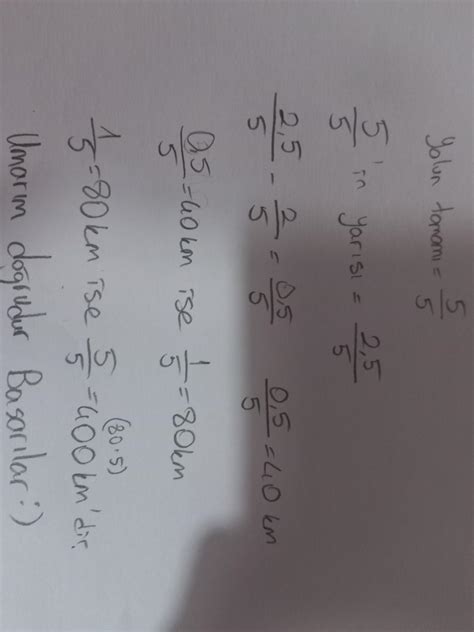 Yolun tamamı = 5/5
5/5 'in yarısı = 2,5/5
2,5/5 - 2/5 = 0,5/5   0,5/5 = 40 km
0,5/5 = 40 km ise 1/5 = 80 km
1/5 = 80 km ise 5/5 = 400 km'dir.
(80.5)
Umarım doğrudur Başarılar :)